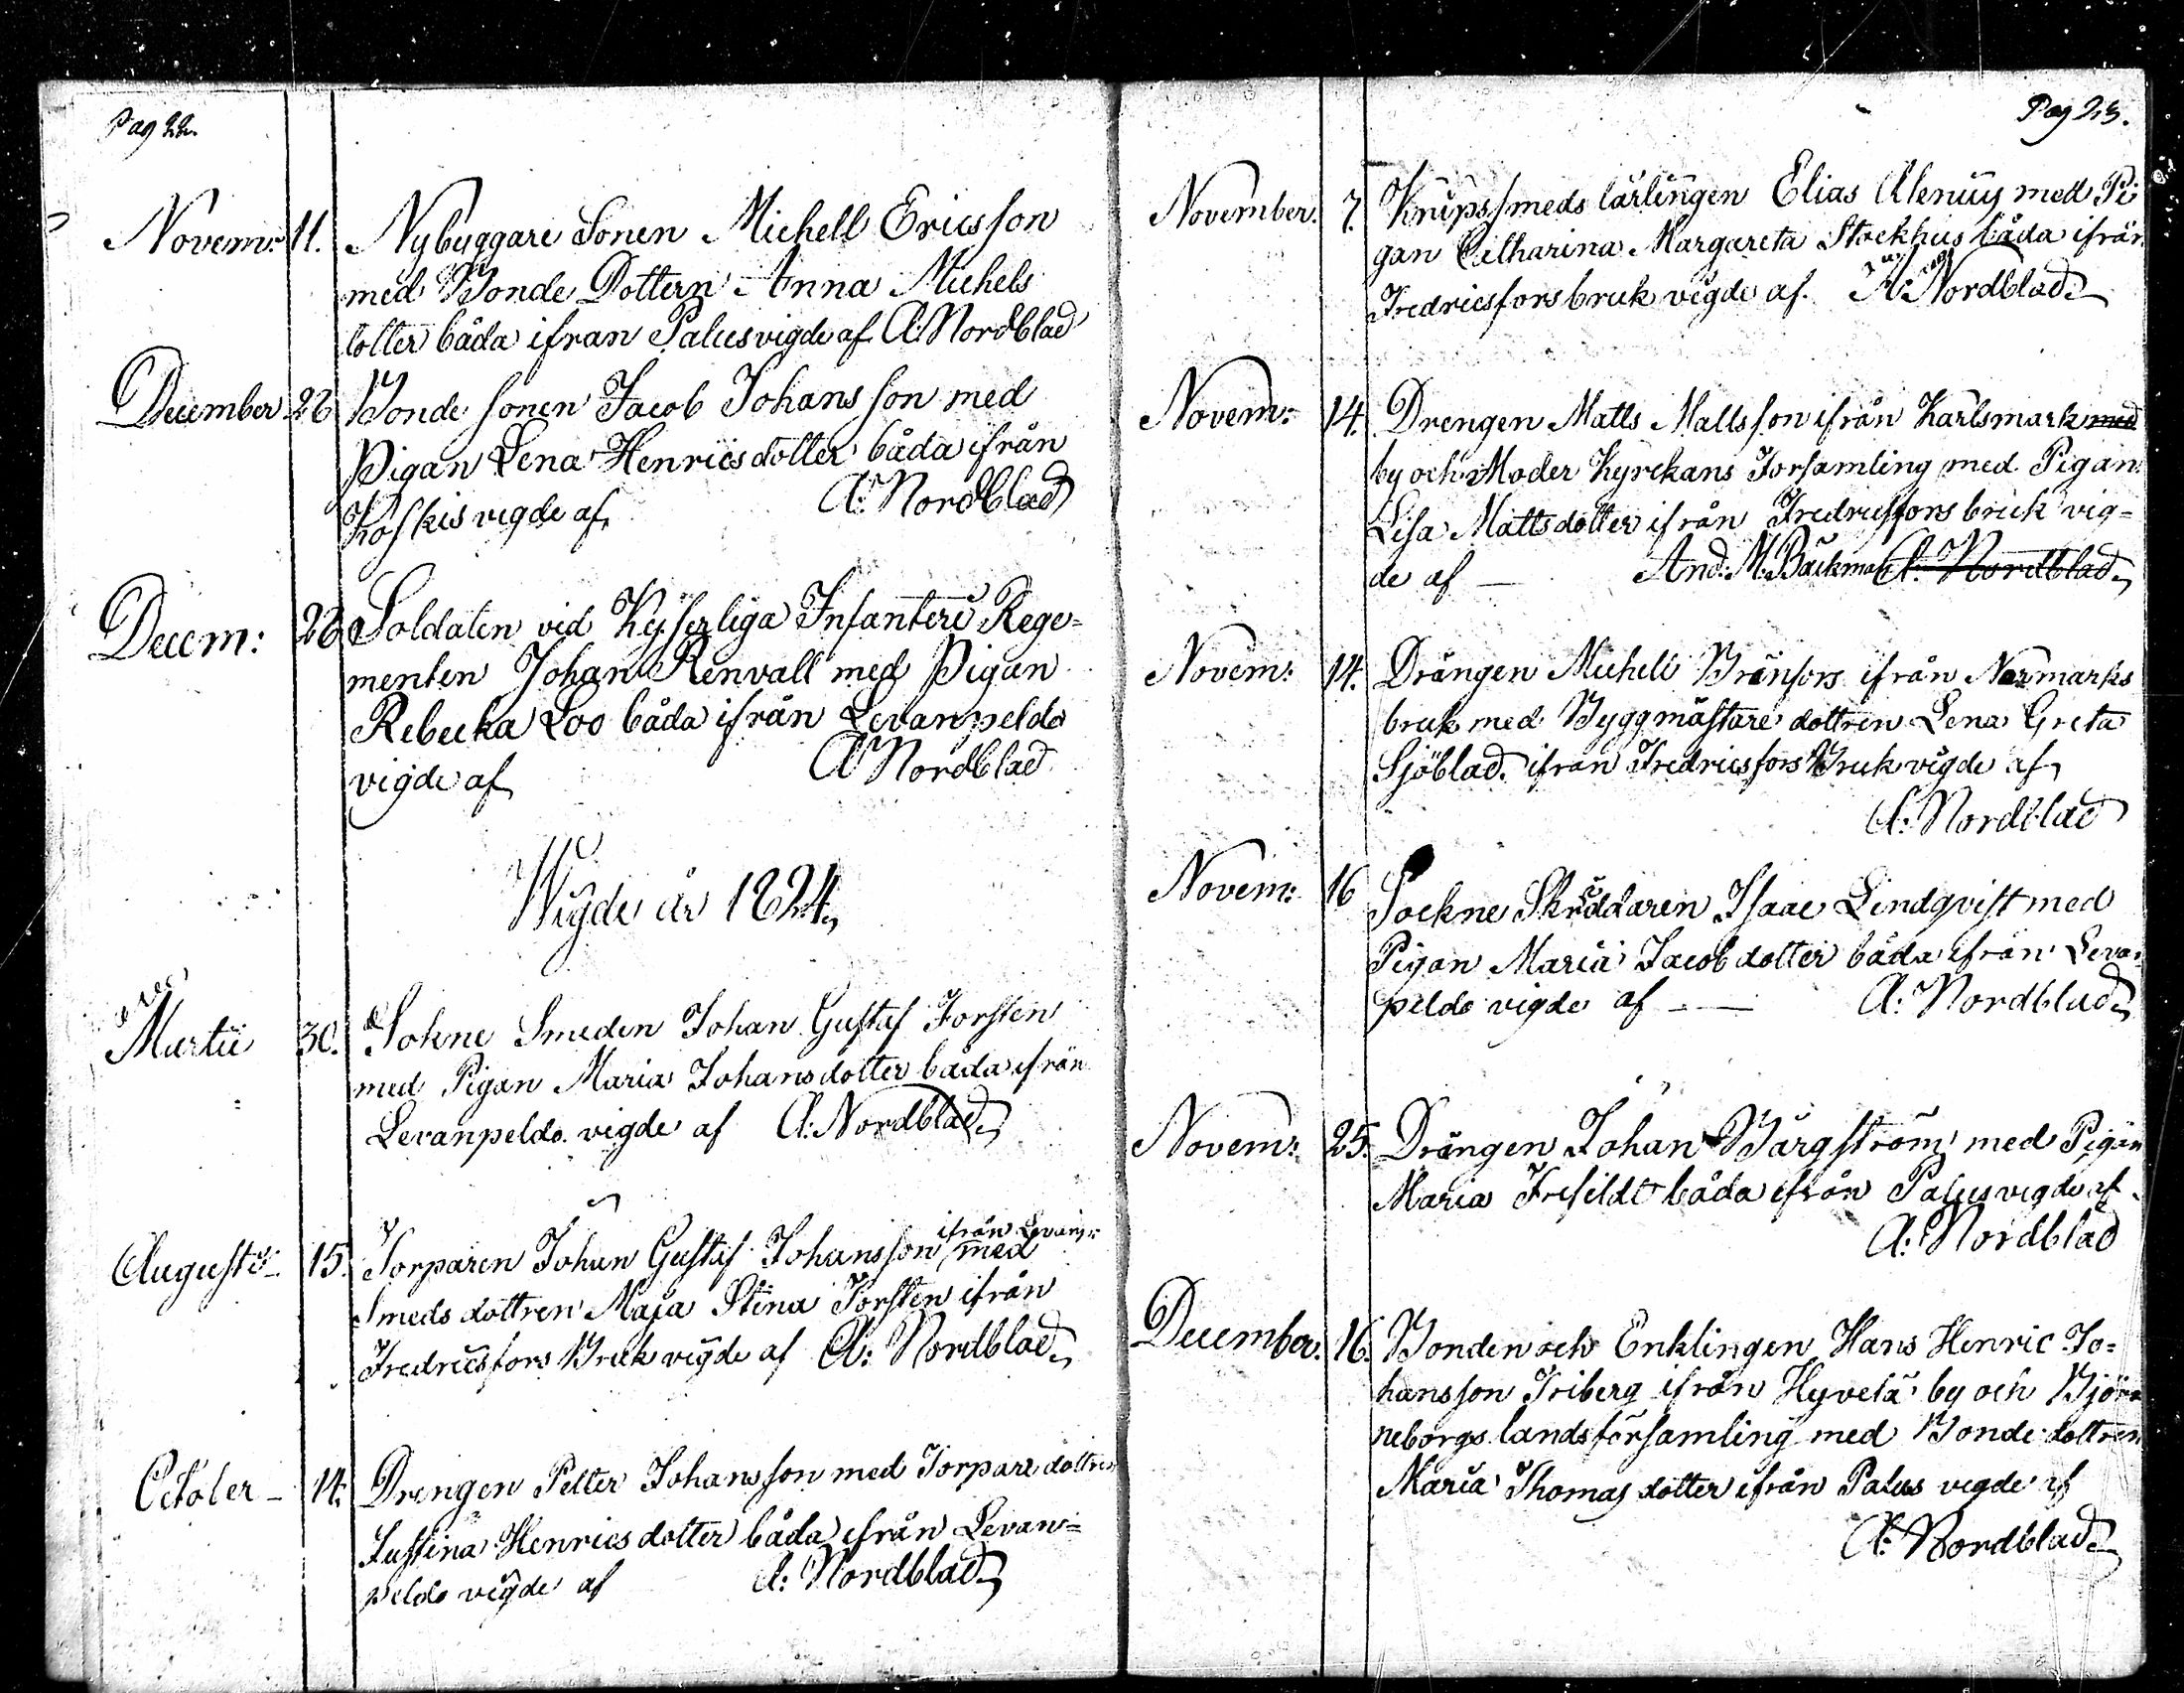 Pag 22.
Novem: 11. Nybyggare Sonen Michell Ericsson
med Bonde Dottern Anna Michels
dotter båda ifran Palus vigde af A: Nordblad
December 26 Bonde sonen Jacob Johansson med
Pigan Lena Henricsdotter båda ifrån
Koskis vigde af A: Nordblad
Decem: 26 Soldaten vid Kejserliga Infanteri Rege=
menten Johan Renvall med Pigan
Rebecka Loo båda ifrån Levanpeldo
vigde af A Nordblad
Wigde år 1824
Martii 30. Sokne Smeden Johan Gustaf Forsten
med Pigan Maria Johansdotter båda ifrån
Levanpeldo vigde af A: Nordblad
ifrån Levanp:
Augusti 15. Torparen Johan Gustaf Johansson med
Smeds dottren Maja Stina Forsten ifrån
Fredricsfors Bruk vigde af A: Nordblad
October - 14. Drengen Petter Johansson med Torpare dottren
Justina Henricsdotter båda ifrån Levan=
peldo vigde af A: Nordblad
Pag 23.
November. 7. Knipssmeds lärlingen Elias Alenius med Pi
gan Catharina Margareta Stockhus båda ifrån
Fredricsfors bruk vigde af. A: Nordblad
Novem: 14. Drengen Matts Mattsson ifrån Karlsmark med
by och Moder Kyrckans Forsamling med Pigan
Lisa Mattsdotter ifrån Fredricsfors bruk vig=
de af — And: M: Bäckman A: Nordblad
Novem: 14. Drängen Michell Bränfors ifrån Normarks
bruk med Byggmästare dottren Lena Greta
Sjöblad ifrån Fredricsfors Bruk vigde af
A: Nordblad
Novem: 16 Sockne Skräddaren Isaac Lindqvist med
Pigan Maria Jacobdotter båda ifrån Levan
peldo vigde af — A: Nordblad
Novem: 25. Drängen Johan Bärgström med Pigan
Maria Frifeldt båda ifrån Palus vigde af
A: Nordblad
December. 16. Bonden och Enklingen Hans Henric Jo=
hansson Friberg ifrån Hyvelä by och Björ
neborgs landsförsamling med Bonde dottren
Maria Thomasdotter ifrån Palus vigde af
A: Nordblad